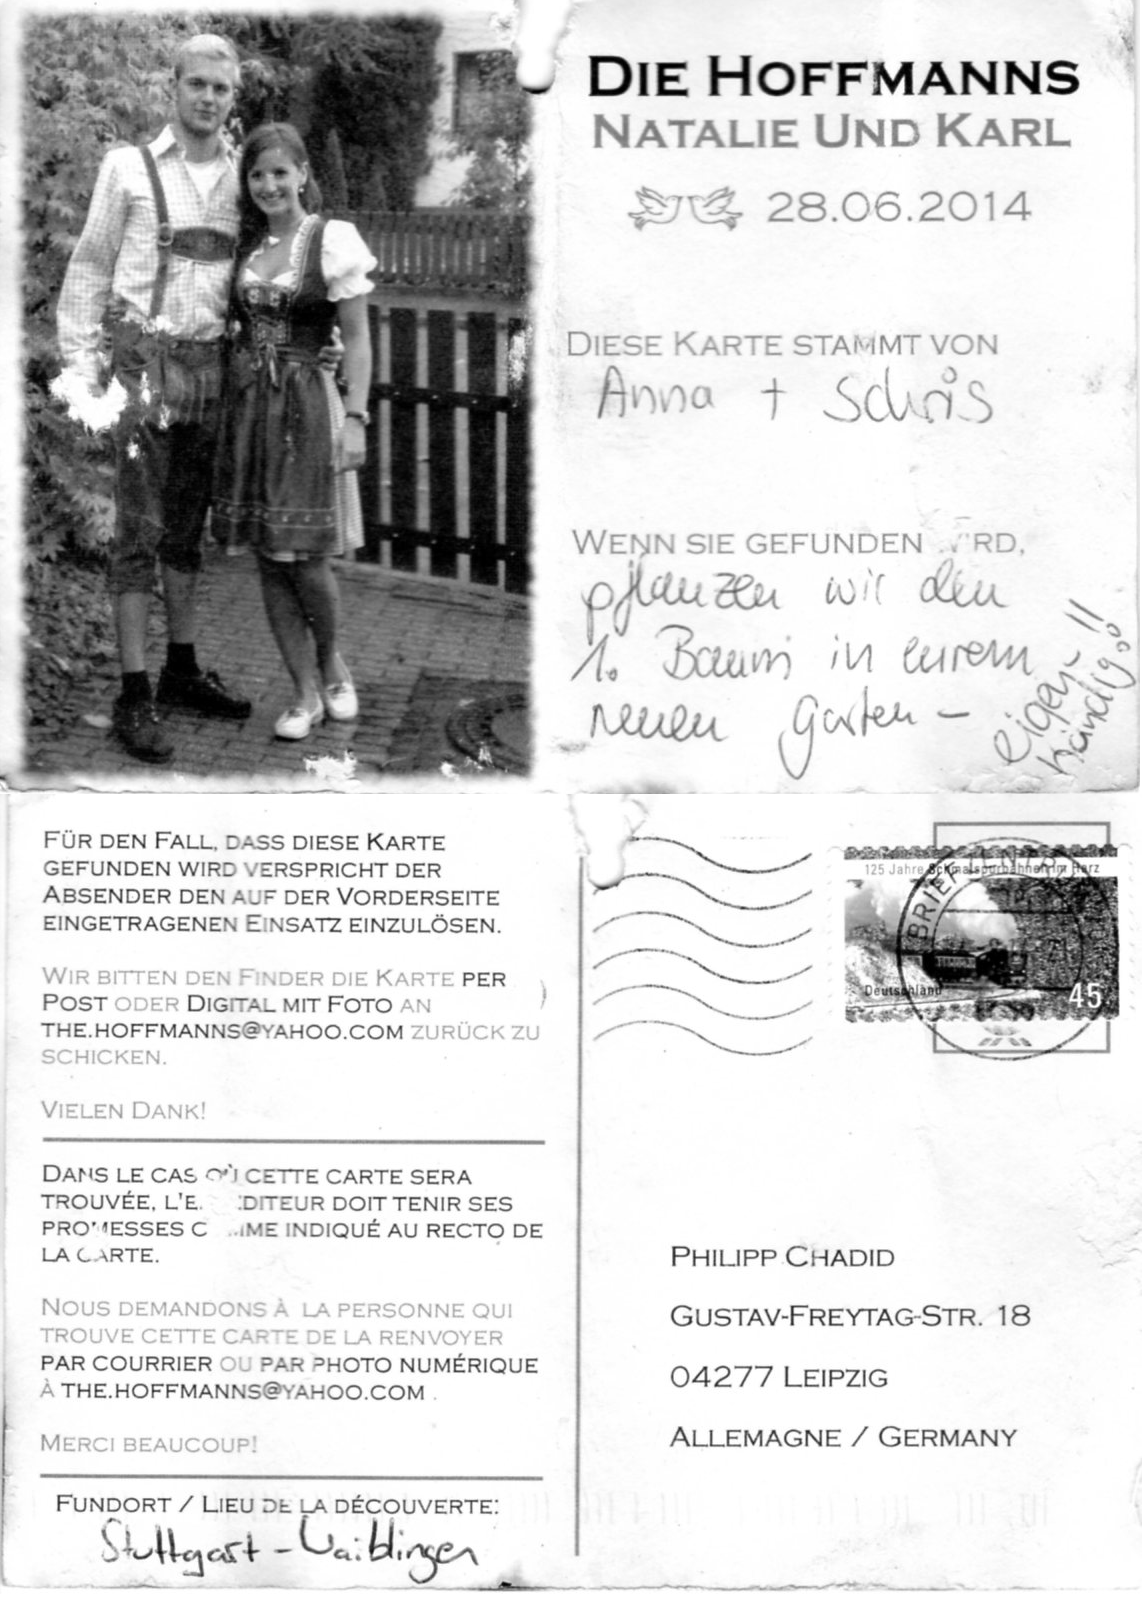 DIE HOFFMANNS
NATALIE UND KARL
28.06.2014
DIESE KARTE STAMMT VON
Anna + Schris
WENN SIE GEFUNDEN WIRD,
pflanzen wir den
1. Baum in eurem
neuen Garten –
eigen-
händig!!
FÜR DEN FALL, DASS DIESE KARTE
GEFUNDEN WIRD VERSPRICHT DER
ABSENDER DEN AUF DER VORDERSEITE
EINGETRAGENEN EINSATZ EINZULÖSEN.
WIR BITTEN DEN FINDER DIE KARTE PER
POST ODER DIGITAL MIT FOTO AN
THE.HOFFMANNS@YAHOO.COM ZURÜCK ZU
SCHICKEN.
VIELEN DANK!
DANS LE CAS OÙ CETTE CARTE SERA
TROUVÉE, L'EXPÉDITEUR DOIT TENIR SES
PROMESSES COMME INDIQUÉ AU RECTO DE
LA CARTE.
NOUS DEMANDONS À LA PERSONNE QUI
TROUVE CETTE CARTE DE LA RENVOYER
PAR COURRIER OU PAR PHOTO NUMÉRIQUE
À THE.HOFFMANNS@YAHOO.COM .
MERCI BEAUCOUP!
FUNDORT / LIEU DE LA DÉCOUVERTE:
Stuttgart - Waiblingen
125 Jahre Schmalspurbahnen im Harz
BRIEFZENTRUM
Deutschland
45
PHILIPP CHADID
GUSTAV-FREYTAG-STR. 18
04277 LEIPZIG
ALLEMAGNE / GERMANY